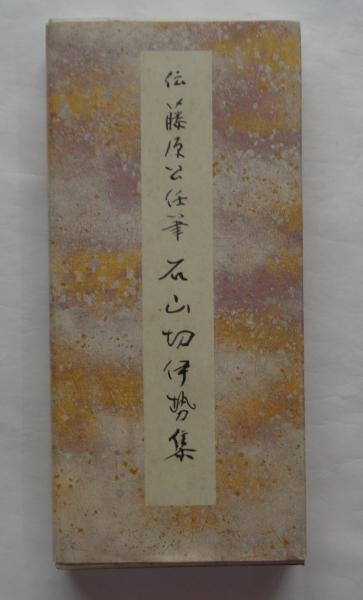 伝藤原公任筆 石山切伊勢集